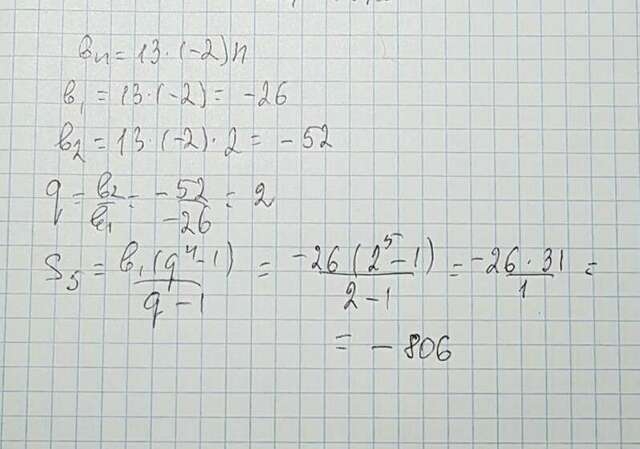 bn = 13 · (-2)n
b₁ = 13 · (-2) = -26
b₂ = 13 · (-2) · 2 = -52
q = b₂/b₁ = -52/-26 = 2
S₅ = b₁(q⁴-1)/q-1 = -26(2⁵-1)/2-1 = -26·31/1 =
= -806